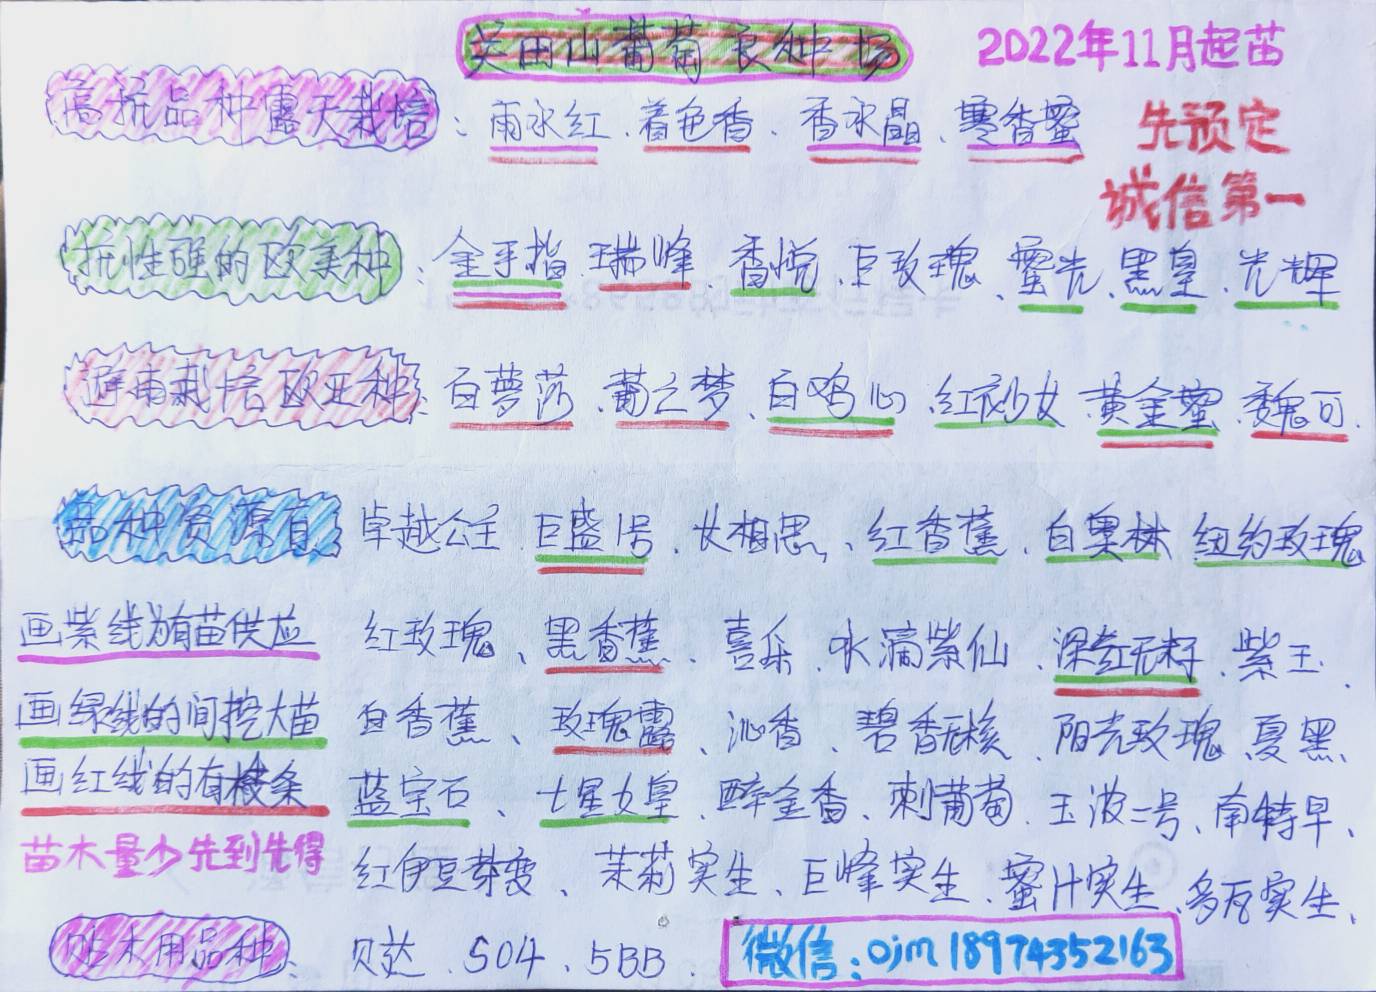 关田山葡萄良种场
2022年11月起苗
高抗品种露天栽培：雨水红、着色香、香水晶、寒香蜜
先预定
诚信第一
抗性强的欧美种：金手指、瑞峰、香悦、巨玫瑰、蜜光、黑皇、光辉
避雨栽培欧亚种：白萝莎、葡之梦、白鸡心、红衣少女、黄金蜜、魏可、
品种资源有 卓越公主、巨盛1号、女相思、红香蕉、白奥林、纽约玫瑰
画紫线为有苗供应 红玫瑰、黑香蕉、喜乐、水滴紫仙、深红无籽、紫玉、
画绿线的间挖大苗 白香蕉、玫瑰露、沁香、碧香无核、阳光玫瑰、夏黑、
画红线的有枝条 蓝宝石、七星女皇、醉金香、刺葡萄、玉波二号、南特早、
苗木量少先到先得
红伊豆芽变、茉莉实生、巨峰实生、蜜汁实生、多瓦实生、
砧木用品种：贝达、SO4、5BB、
微信：ojm18974352163